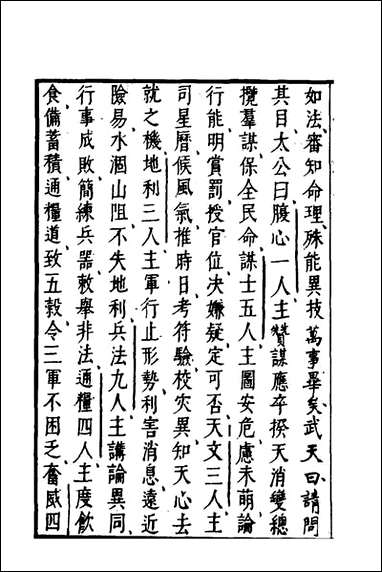 如法審知命理殊能異技萬事畢矣武天曰請問
其目太公曰腹心一人主贊謀應卒揆天消變總
攬羣謀保全民命謀士五人主圖安危慮未萌論
行能明賞罰授官位决嫌疑定可否天文三人主
司星曆候風氣推時日考符驗校灾異知天心去
就之機地利三人主軍行止形勢利害消息遠近
險易水涸山阻不失地利兵法九人主講論異同
行事成敗簡練兵器敕舉非法通糧四人主度飲
食備蓄積通糧道致五穀令三軍不困乏奮威四